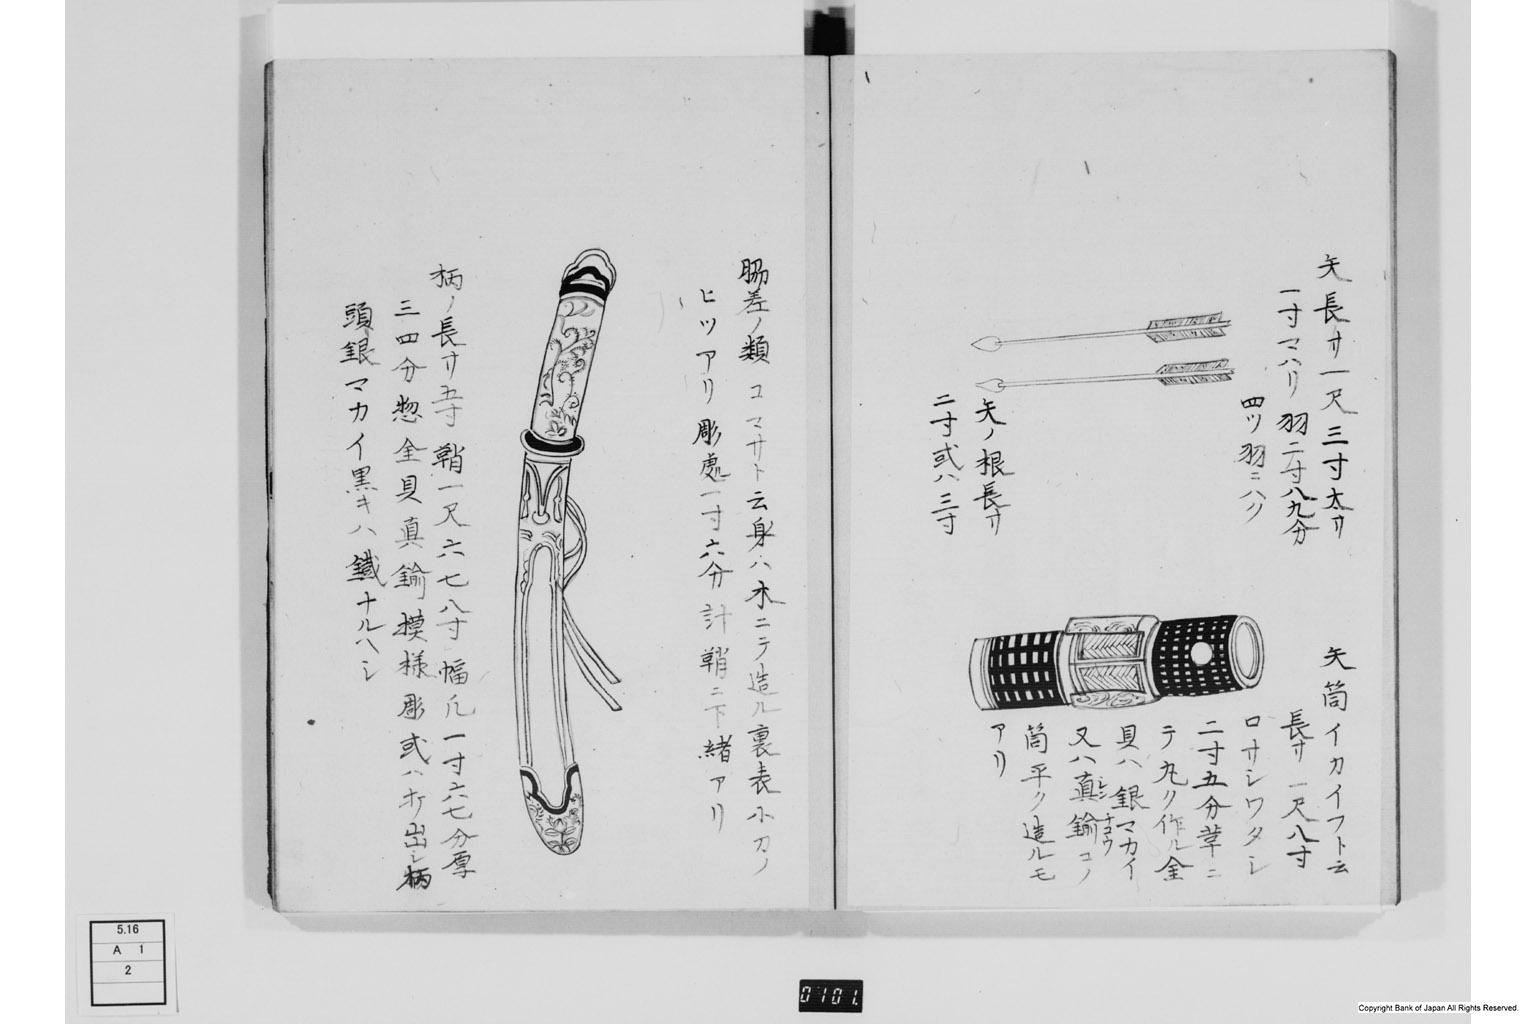 矢長サ一尺三寸太サ
一寸マハリ羽二寸八九分
四ツ羽ニハク
矢ノ根長サ
二寸或ハ三寸
矢筒イカイフト云
長サ一尺八寸
口サシワタシ
二寸五分葦ニ
テ丸ク作ル金
具ハ銀マカイ
又ハ真鍮コノ
シンチユウ
筒平ク造ルモ
アリ
脇差ノ類コマサト云身ハ木ニテ造ル裏表小刀ノ
ヒツアリ彫處一寸六分計鞘ニ下緒アリ
柄ノ長サ五寸鞘一尺六七八寸幅凡一寸六七分厚
三四分惣金具真鍮模様彫或ハ打出シ柄
頭銀マカイ黒キハ鐵ナルヘシ
5.16
A 1
2
0101.
Copyright Bank of Japan All Rights Reserved.